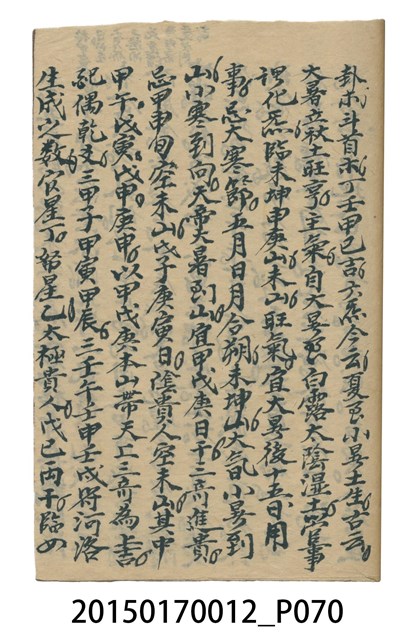 卦木斗首木丁壬甲己吉方氣今云夏至小暑土生古云
大暑立秋土旺亨主氣自大暑至白露太陰湿土官事
謂化氣臨未坤申庚山未山旺氣宜大暑後十五日用
事忌大寒節五月日月合朔未坤山大氣小暑到
山小寒到向天帝大暑到山宜甲戊庚日干三奇進貴
忌甲申旬空未山戊子庚寅日陰貴人空未山其中
甲子戊寅戊申庚申以甲戊庚本山帶天上三奇為吉
配偶乾支三甲子甲寅甲辰三壬午壬申壬戌將河洛
生成之数官星丁帑星乙太極貴人戊己両干臨四
20150170012_P070